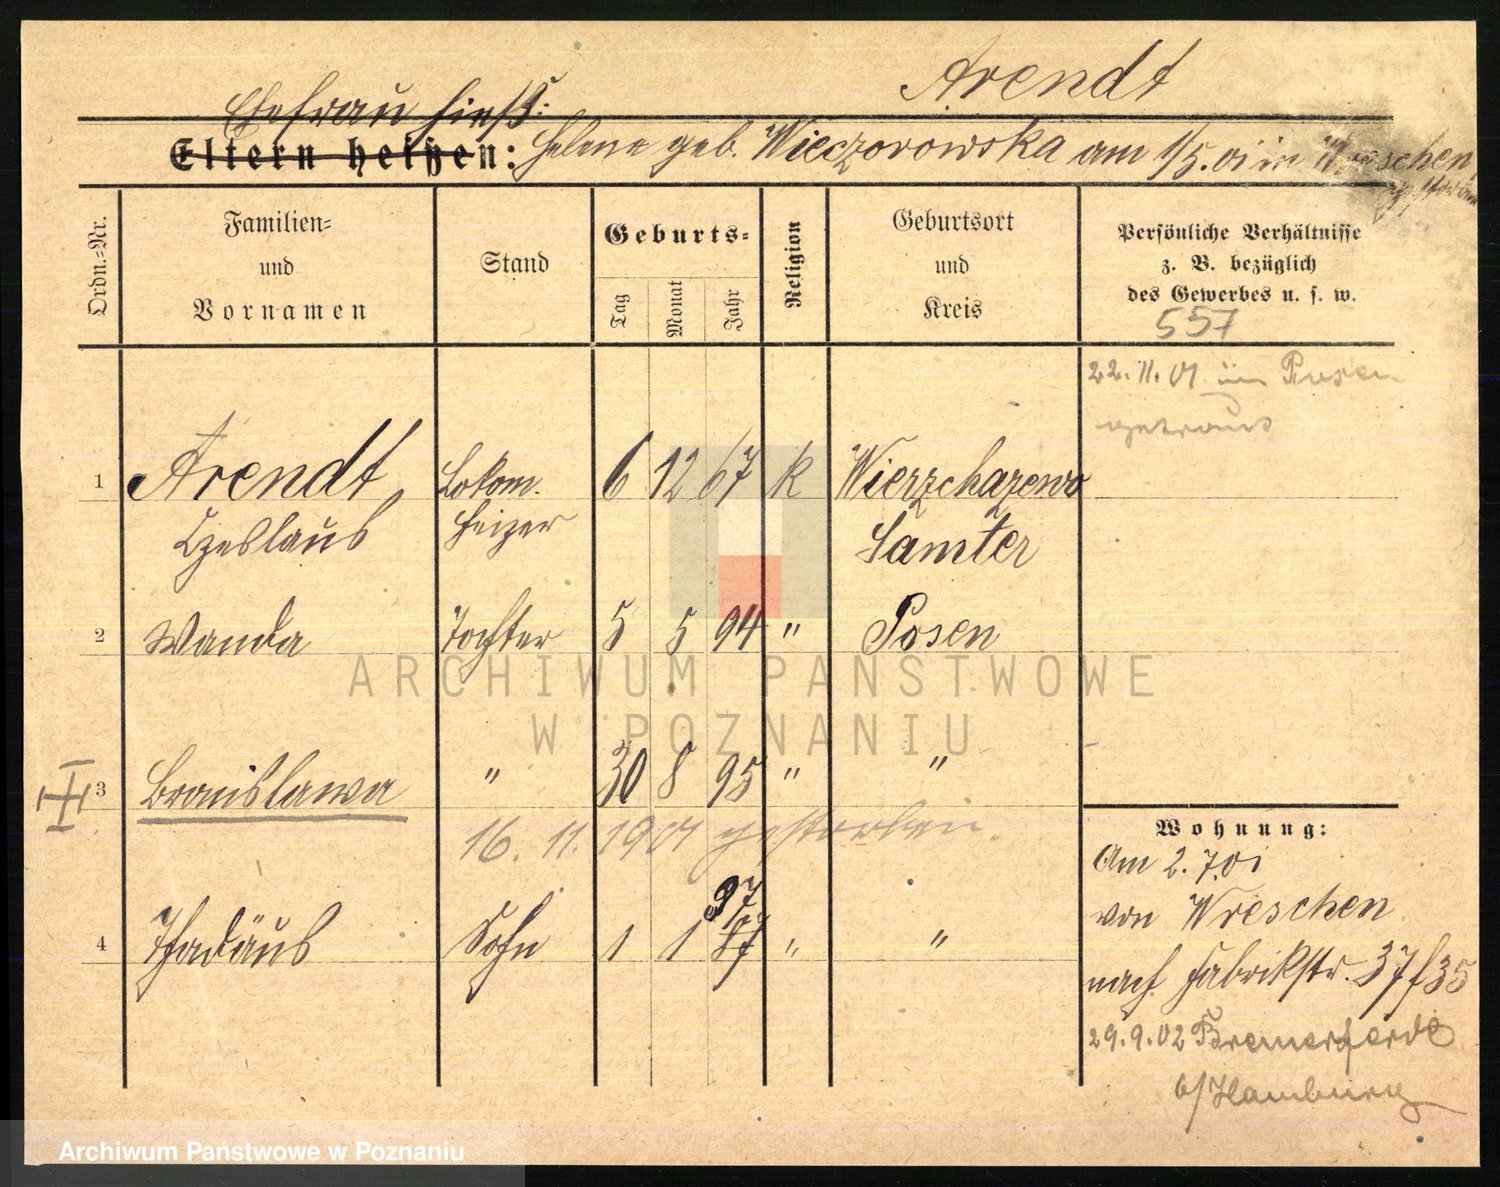 Arendt
Ehefrau hieß:
Eltern heißen: Helene geb. Wieczorowska am 1/5. 01 in Wreschen
gestorben
Ordn.=Nr.
Familien=
und
Vornamen
Stand
Geburts=
Tag
Monat
Jahr
Religion
Geburtsort
und
Kreis
Persönliche Verhältnisse
z. B. bezüglich
des Gewerbes u. s. w.
557
22. 11. 01 in Posen
getraut
1 Arendt Lokom. 6 12 67 K Wierzchazewo
Czeslaus Heizer Samter
2 Wanda Tochter 5 5 94 " Posen
3 Bronislawa " 30 8 95 " "
16. 11. 1901 gestorben.
97
4 Thadäus Sohn 1 1 87 " "
Wohnung:
Am 2. 7. 01
von Wreschen
nach Fabrikstr. 37/35
29. 9. 02 Bremerförde
b/Hamburg
ARCHIWUM PAŃSTWOWE
W POZNANIU
Archiwum Państwowe w Poznaniu